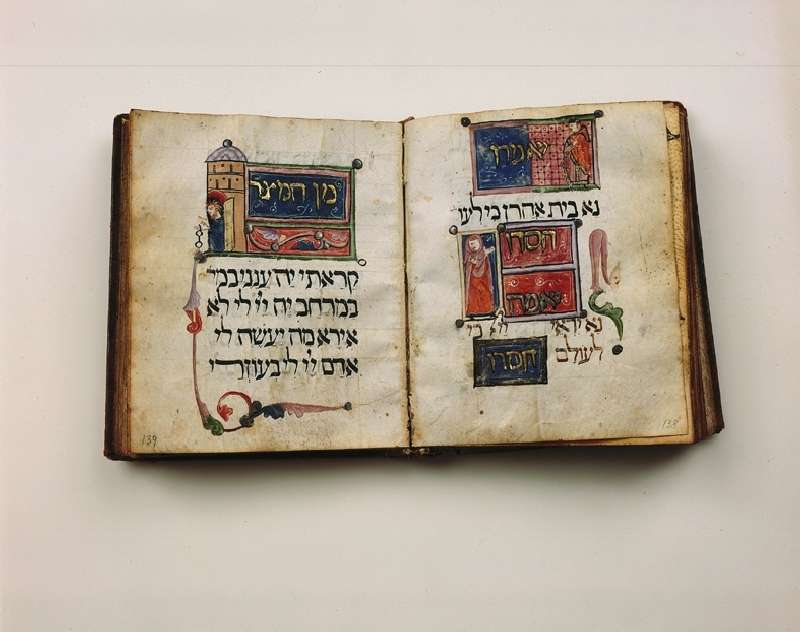 יאמרו
נא בית אהרן כי לעו
חסדו
יאמרו
נא יראי יי כי
לעולם
חסדו
138
מן המיצר
קראתי יה ענני במר
במרחב יה ייי לי לא
אירא מה יעשה לי
אדם ייי לי בעוזרי
139